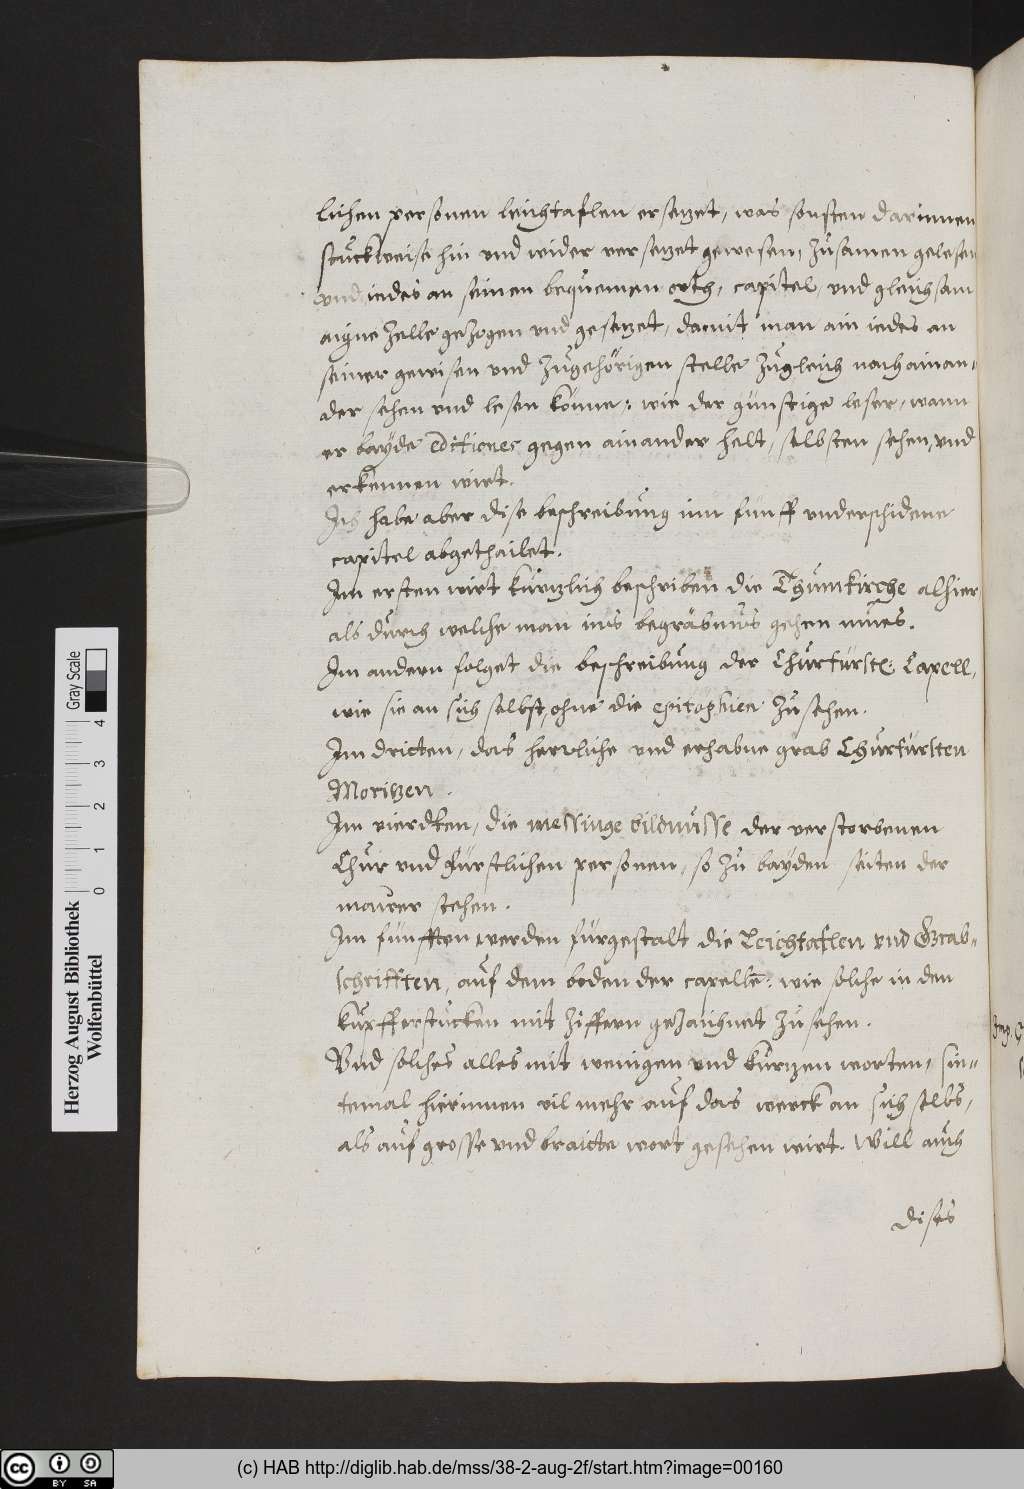 lichen personen leichtaflen ersezet, was sonsten darinnen
stuckweise hin und wider versezet gewesen, zusamen gelesen
und iedes an seinen bequemen orth, capitel, und gleichsam
aigne zelle gezogen und gesezet, damit man ain iedes an
seiner gewisen und zugehörigen stelle zugleich nachainan-
der sehen und lesen könne: wie der günstige leser, wann
er bayde editiones gegen ainander helt, selbsten sehen, und
erkennen wirt.
Ich habe aber dise beschreibung inn fünff underschidene
capitel abgethailet.
Im ersten wirt kürzlich beschriben die Thumkirche alhier
als durch welche man ins begräbnus gehen mues.
Im andern folget die beschreibung der Churfürstl: Capell,
wie sie an sich selbst, ohne die epitaphien zu sehen.
Im dritten, das herrliche und erhabne grab Churfürsten
Moritzen.
Im vierdten, die messinge bildnusse der verstorbenen
Chur und Fürstlichen personen, so zu bayden seiten der
maurer stehen.
Im fünfften werden fürgestalt die Leichtaflen und Grab-
schrifften, auf dem boden der capelle: wie solche in den
kupfferstucken mit ziffern gezaichnet zu sehen.
Und solches alles mit wenigen und kurzen worten, sin-
temal hierinnen vil mehr auf das werck an sich selbs,
als auf grosse und braite wort gesehen wirt. Will auch
dises
Herzog August Bibliothek
Wolfenbüttel
Gray Scale
0 1 2 3 4
cc BY SA
(c) HAB http://diglib.hab.de/mss/38-2-aug-2f/start.htm?image=00160